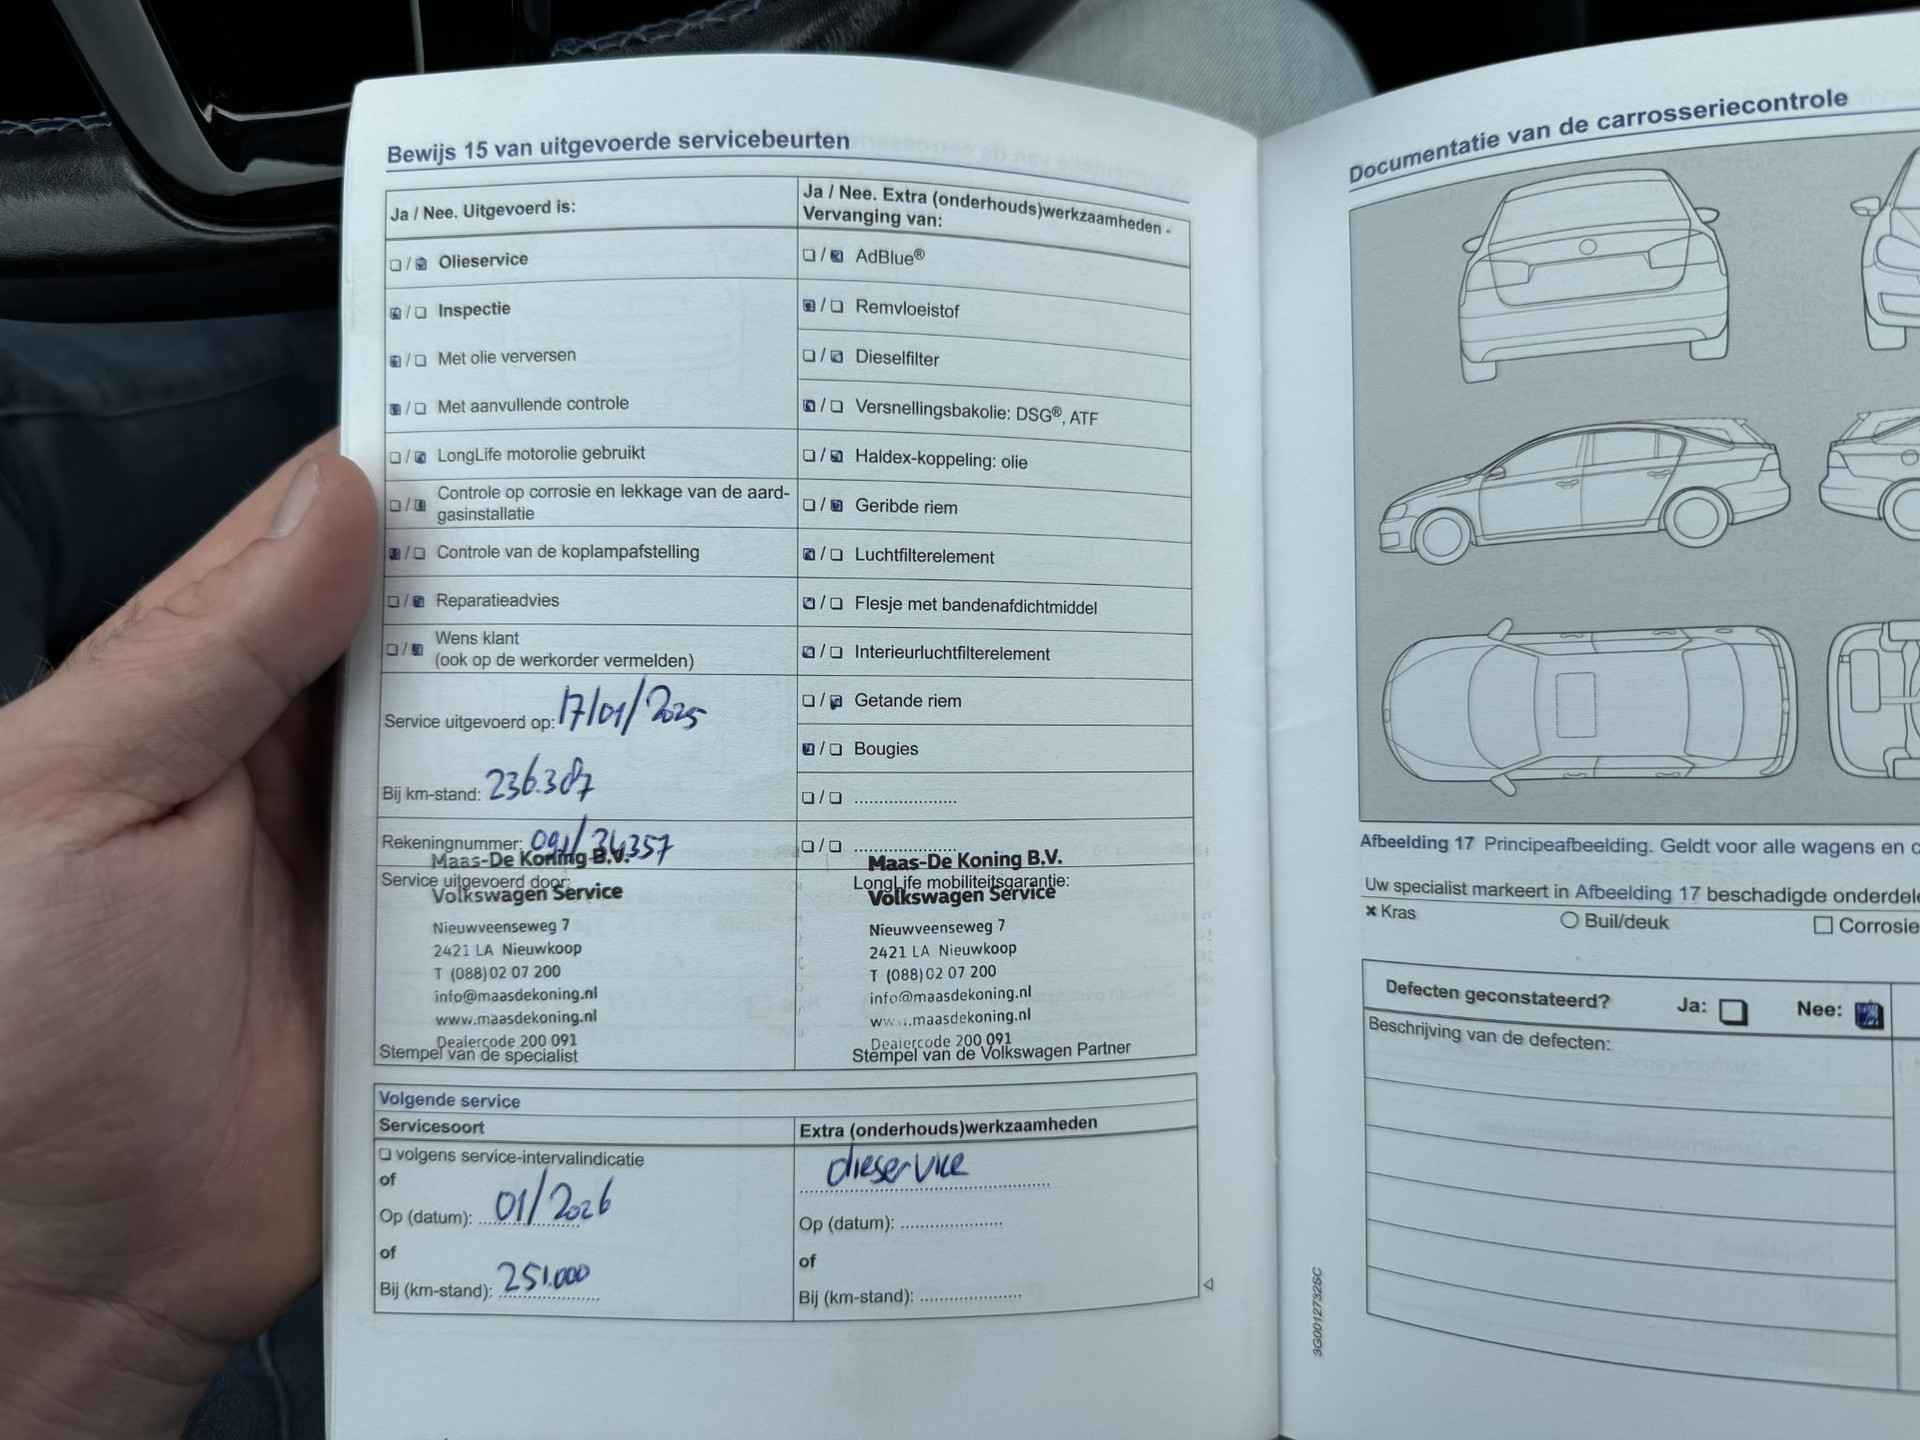 Bewijs 15 van uitgevoerde servicebeurten
Ja / Nee. Uitgevoerd is:
Olieservice
Inspectie
Met olie verversen
Met aanvullende controle
LongLife motorolie gebruikt
Controle op corrosie en lekkage van de aard-
gasinstallatie
Controle van de koplampafstelling
Reparatieadvies
Wens klant
(ook op de werkorder vermelden)
Service uitgevoerd op: 17/01/2025
Bij km-stand: 236.387
Rekeningnummer: 091/34357
Service uitgevoerd door:
Maas-De Koning B.V.
Volkswagen Service
Nieuwveenseweg 7
2421 LA Nieuwkoop
T (088) 02 07 200
info@maasdekoning.nl
www.maasdekoning.nl
Dealercode 200 091
Stempel van de specialist
Ja / Nee. Extra (onderhouds)werkzaamheden -
Vervanging van:
AdBlue®
Remvloeistof
Dieselfilter
Versnellingsbakolie: DSG®, ATF
Haldex-koppeling: olie
Geribde riem
Luchtfilterelement
Flesje met bandenafdichtmiddel
Interieurluchtfilterelement
Getande riem
Bougies
/ ......................
/ ......................
Maas-De Koning B.V.
LongLife mobiliteitsgarantie:
Volkswagen Service
Nieuwveenseweg 7
2421 LA Nieuwkoop
T (088) 02 07 200
info@maasdekoning.nl
www.maasdekoning.nl
Dealercode 200 091
Stempel van de Volkswagen Partner
Volgende service
Servicesoort
volgens service-intervalindicatie
of
Op (datum): 01/2026
of
Bij (km-stand): 251.000
Extra (onderhouds)werkzaamheden
olieservice
Op (datum): ......................
of
Bij (km-stand): ......................
Documentatie van de carrosseriecontrole
Afbeelding 17 Principeafbeelding. Geldt voor alle wagens en
Uw specialist markeert in Afbeelding 17 beschadigde
Kras
Buil/deuk
Corrosie
Defecten geconstateerd? Ja: Nee:
Beschrijving van de defecten:
3G0012732SC